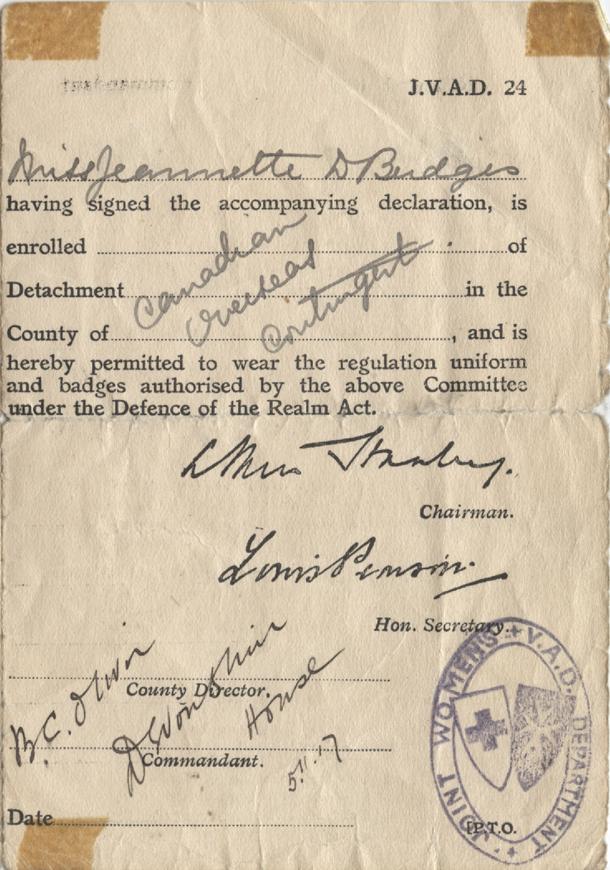 J.V.A.D. 24
Miss Jeannette D Budges
having signed the accompanying declaration, is
enrolled of
Detachment in the
County of , and is
Canadian
Overseas
Contingent
hereby permitted to wear the regulation uniform
and badges authorised by the above Committee
under the Defence of the Realm Act.
Chairman.
Louis Penson.
Hon. Secretary.
County Director.
B.C. Oliver
Devonshire
House
Commandant.
5.11.17
Date
[P.T.O.
JOINT WOMEN'S + V.A.D. DEPARTMENT